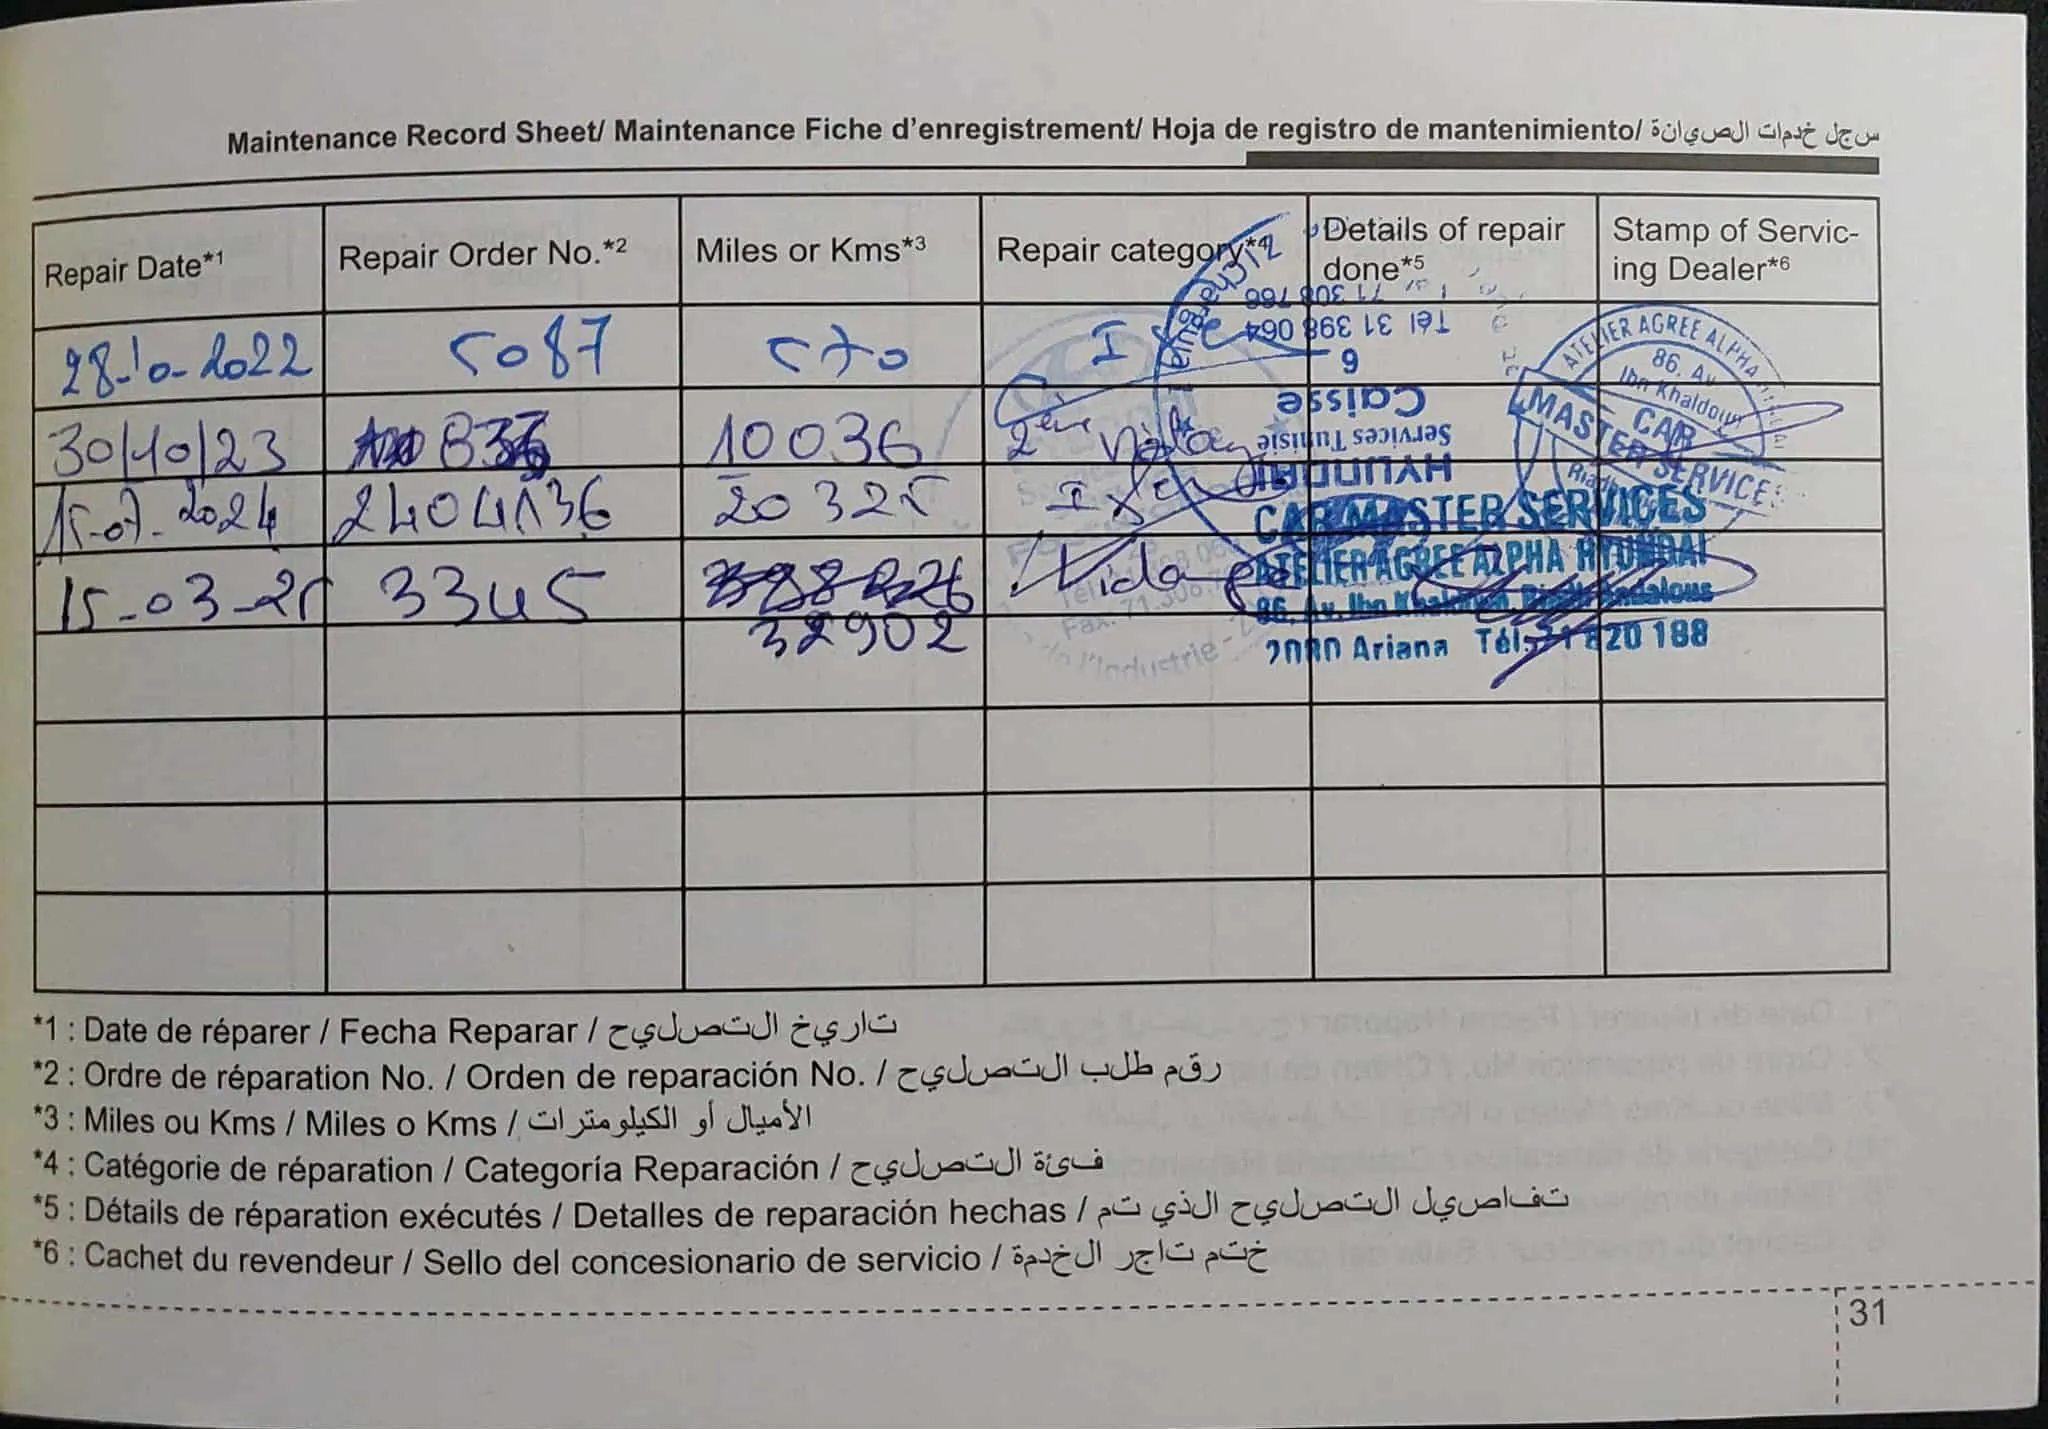 Maintenance Record Sheet/ Maintenance Fiche d'enregistrement/ Hoja de registro de mantenimiento/ سجل خدمات الصيانة
Repair Date*1 Repair Order No.*2 Miles or Kms*3 Repair category*4 Details of repair done*5 Stamp of Servicing Dealer*6
28-10-2022 5087 570 I
30/10/23 10036 2ème
15-07-2024 2404136 20325
15-03-25 3345 Vidange
32902
Tél 31 398 064
71 308 766
9
Caisse
Services Tunisie
HYUNDAI
ATELIER AGREE ALPHA
86, Av
Ibn Khaldoun
CAR
MASTER SERVICES
CAR MASTER SERVICES
ATELIER AGREE ALPHA HYUNDAI
86, Av. Ibn Khaldoun, Riadh Andalous
2080 Ariana Tél: 31 820 188
*1 : Date de réparer / Fecha Reparar / تاريخ التصليح
*2 : Ordre de réparation No. / Orden de reparación No. / رقم طلب التصليح
*3 : Miles ou Kms / Miles o Kms / الأميال أو الكيلومترات
*4 : Catégorie de réparation / Categoría Reparación / فئة التصليح
*5 : Détails de réparation exécutés / Detalles de reparación hechas / تفاصيل التصليح الذي تم
*6 : Cachet du revendeur / Sello del concesionario de servicio / ختم تاجر الخدمة
31